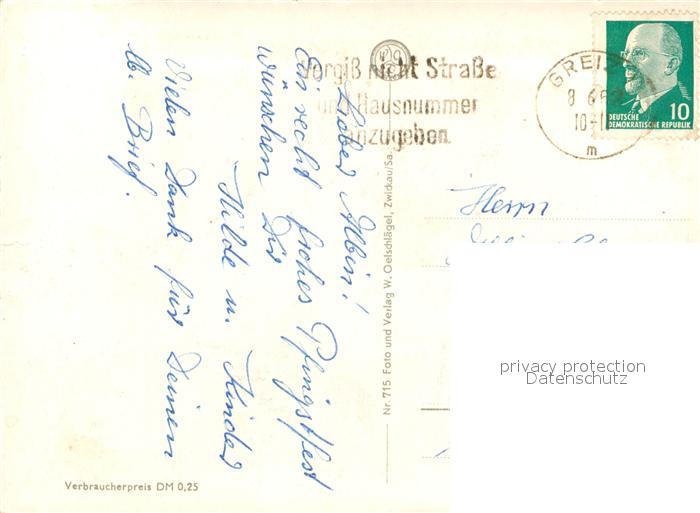 Vergiß nicht Straße
und Hausnummer
anzugeben.
GREIZ
8.6.62
10-1
m
DEUTSCHE
DEMOKRATISCHE REPUBLIK
10
Lieber Albin!
Ein recht frohes Pfingstfest
wünschen Dir
Hilde u. Kinder
Vielen Dank für Deinen
lb. Brief.
Nr. 715 Foto und Verlag W. Oelschlägel, Zwickau/Sa.
Herrn
privacy protection
Datenschutz
Verbraucherpreis DM 0,25